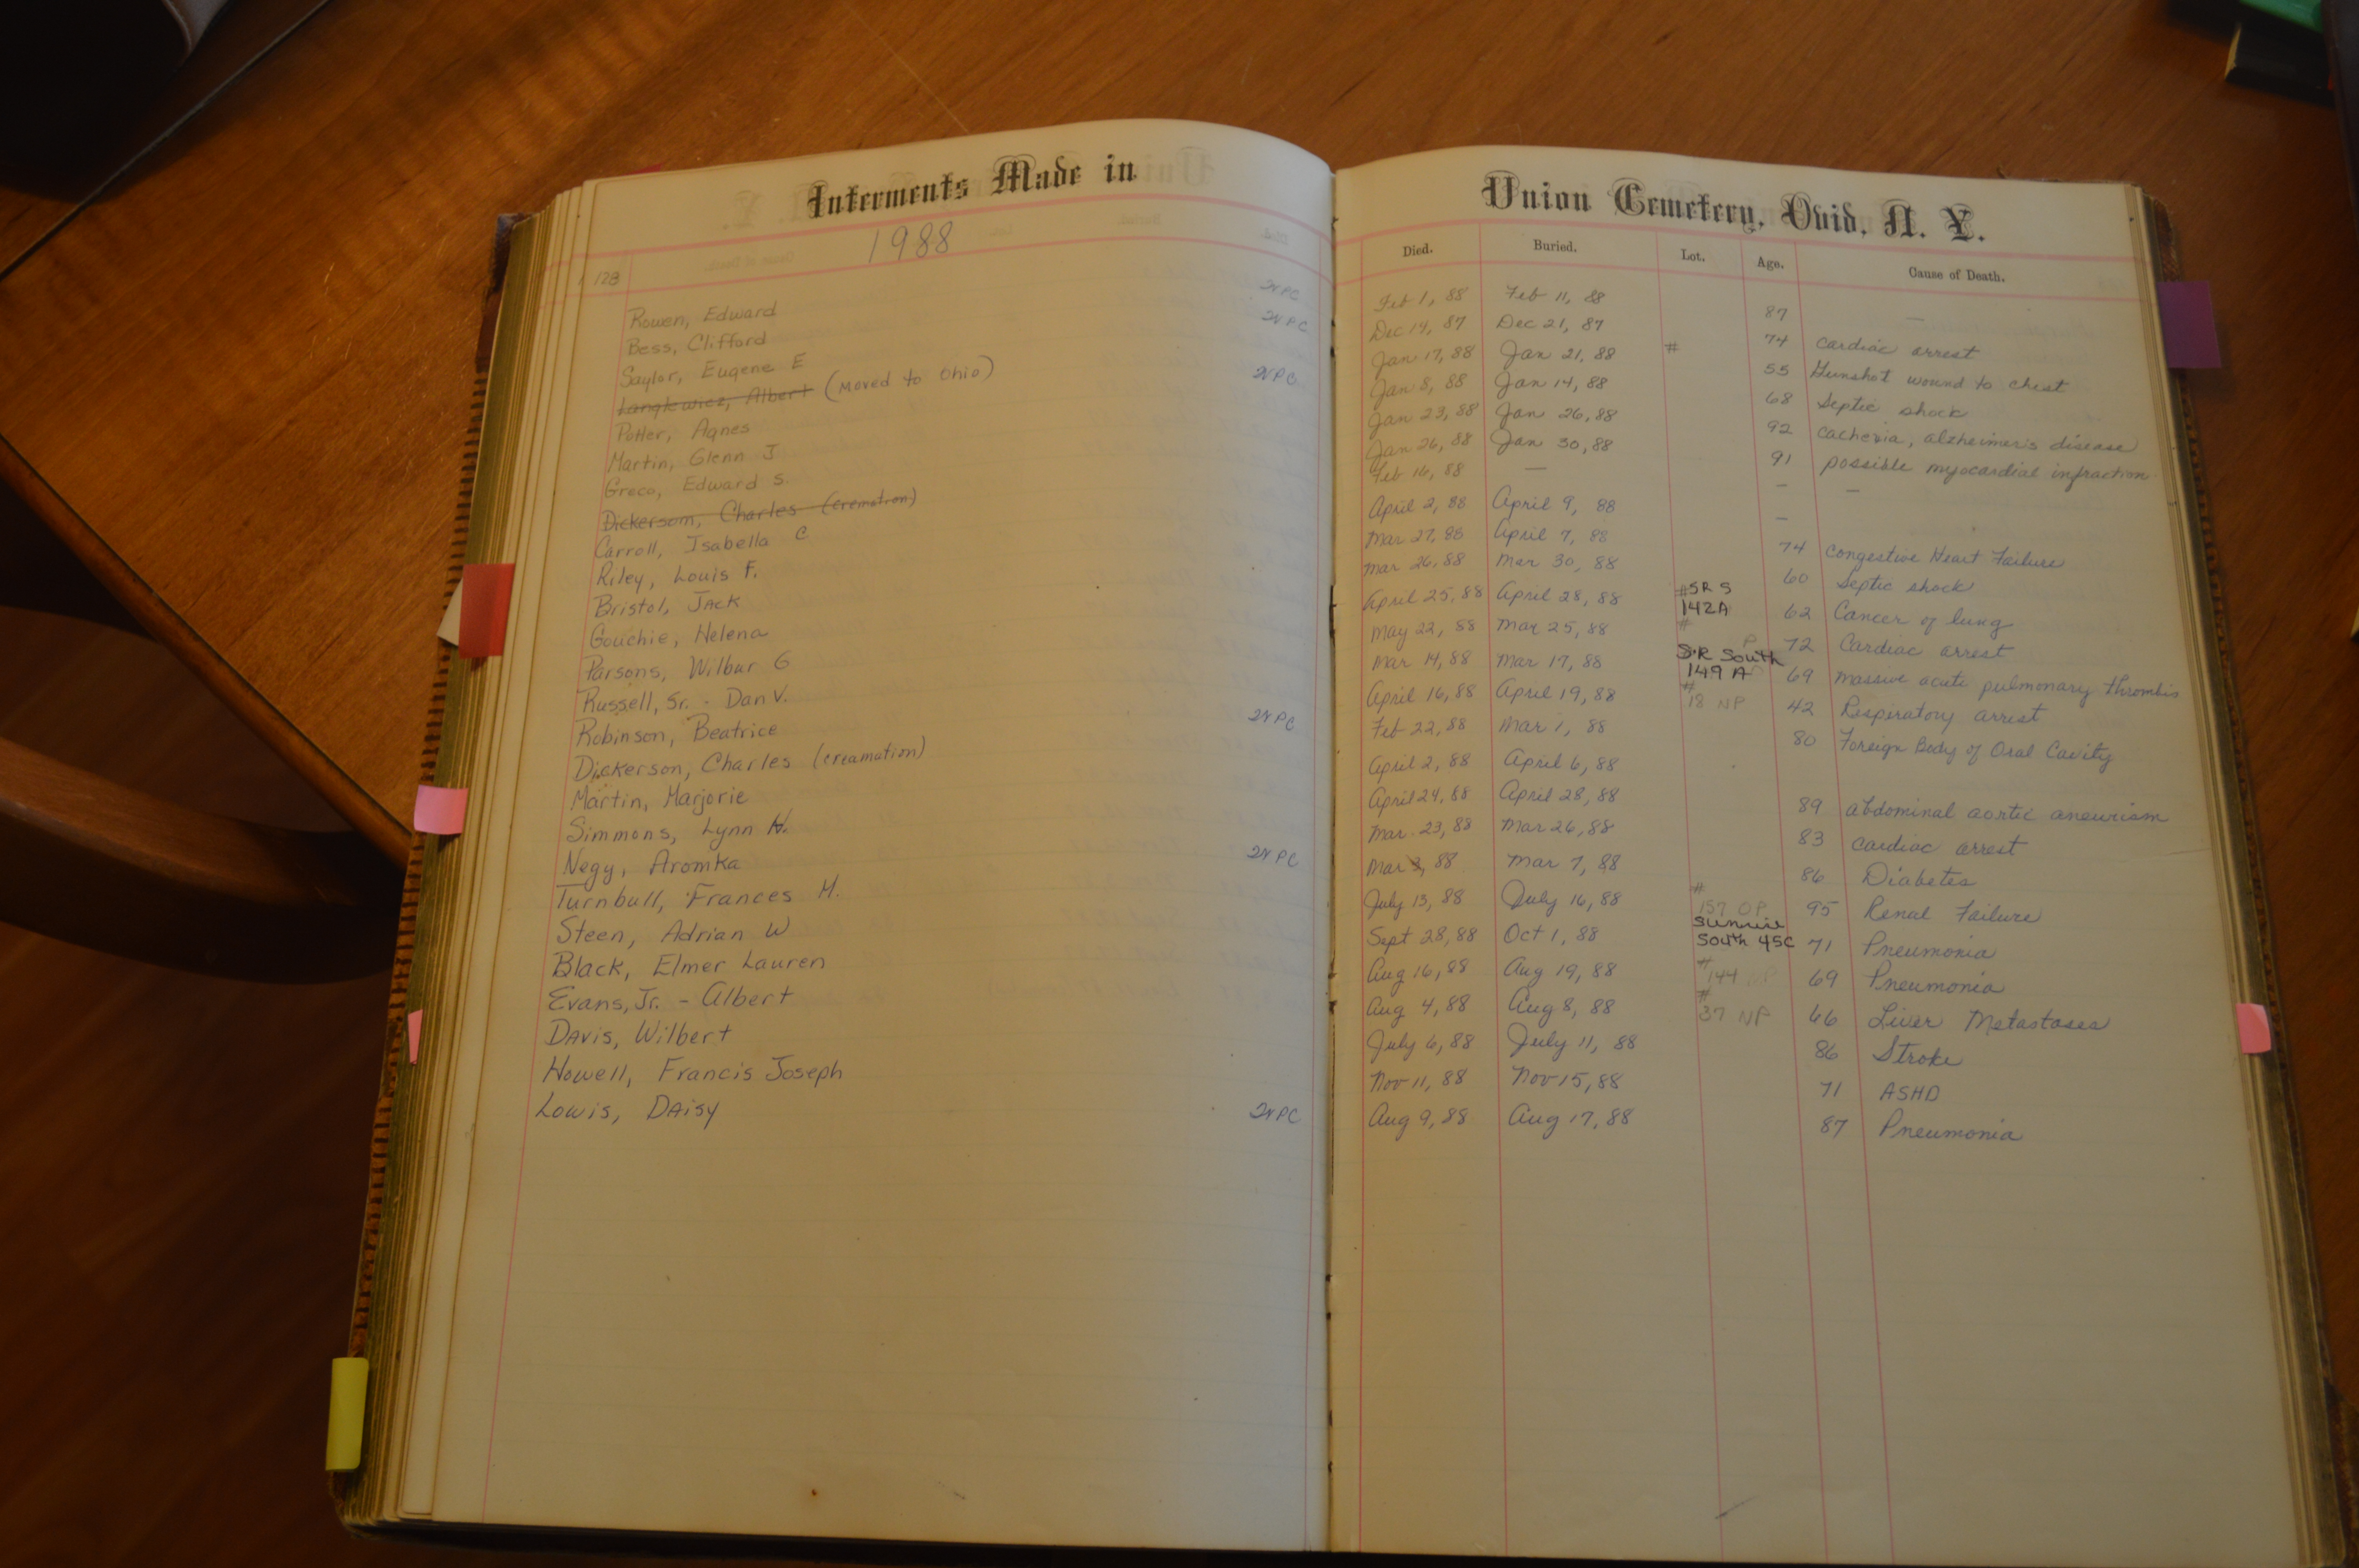 Interments Made in
Union Cemetery, Ovid, N. Y.
128
1988
Died. Buried. Lot. Age. Cause of Death.
Rowen, Edward INPC Feb 1, 88 Feb 11, 88 87 —
Bess, Clifford INPC Dec 14, 87 Dec 21, 87 74 cardiac arrest
Saylor, Eugene E Jan 17, 88 Jan 21, 88 # 55 Gunshot wound to chest
Langkewicz, Albert (moved to Ohio) INPC Jan 8, 88 Jan 14, 88 68 Septic shock
Potter, Agnes Jan 23, 88 Jan 26, 88 92 cachexia, alzheimer's disease
Martin, Glenn J Jan 26, 88 Jan 30, 88 91 possible myocardial infraction
Greco, Edward S. Feb 16, 88 — – –
Dickerson, Charles (cremation) April 2, 88 April 9, 88 –
Carroll, Isabella C Mar 27, 88 April 7, 88 74 Congestive Heart Failure
Riley, Louis F. Mar 26, 88 Mar 30, 88 60 Septic shock
Bristol, Jack April 25, 88 April 28, 88 #SR S 142A 62 Cancer of lung
Gouchie, Helena May 22, 88 Mar 25, 88 # P 72 Cardiac arrest
Parsons, Wilbur G Mar 14, 88 Mar 17, 88 S.R South 149 A 69 massive acute pulmonary thrombis
Russell, Sr. - Dan V. April 16, 88 April 19, 88 # 18 NP 42 Respiratory arrest
Robinson, Beatrice INPC Feb 22, 88 Mar 1, 88 80 Foreign Body of Oral Cavity
Dickerson, Charles (creamation) April 2, 88 April 6, 88
Martin, Marjorie April 24, 88 April 28, 88 89 abdominal aortic aneurism
Simmons, Lynn H. Mar. 23, 88 Mar 26, 88 83 cardiac arrest
Negy, Aromka INPC Mar 3, 88 Mar 7, 88 86 Diabetes
Turnbull, Frances M. July 13, 88 July 16, 88 # 157 OP 95 Renal Failure
Steen, Adrian W Sept 28, 88 Oct 1, 88 Sunrise South 45C 71 Pneumonia
Black, Elmer Lauren Aug 16, 88 Aug 19, 88 # 144 NP 69 Pneumonia
Evans, Jr. - Albert Aug 4, 88 Aug 8, 88 # 37 NP 66 Liver Metastases
Davis, Wilbert July 6, 88 July 11, 88 86 Stroke
Howell, Francis Joseph Nov 11, 88 Nov 15, 88 71 ASHD
Lowis, Daisy INPC Aug 9, 88 Aug 17, 88 87 Pneumonia